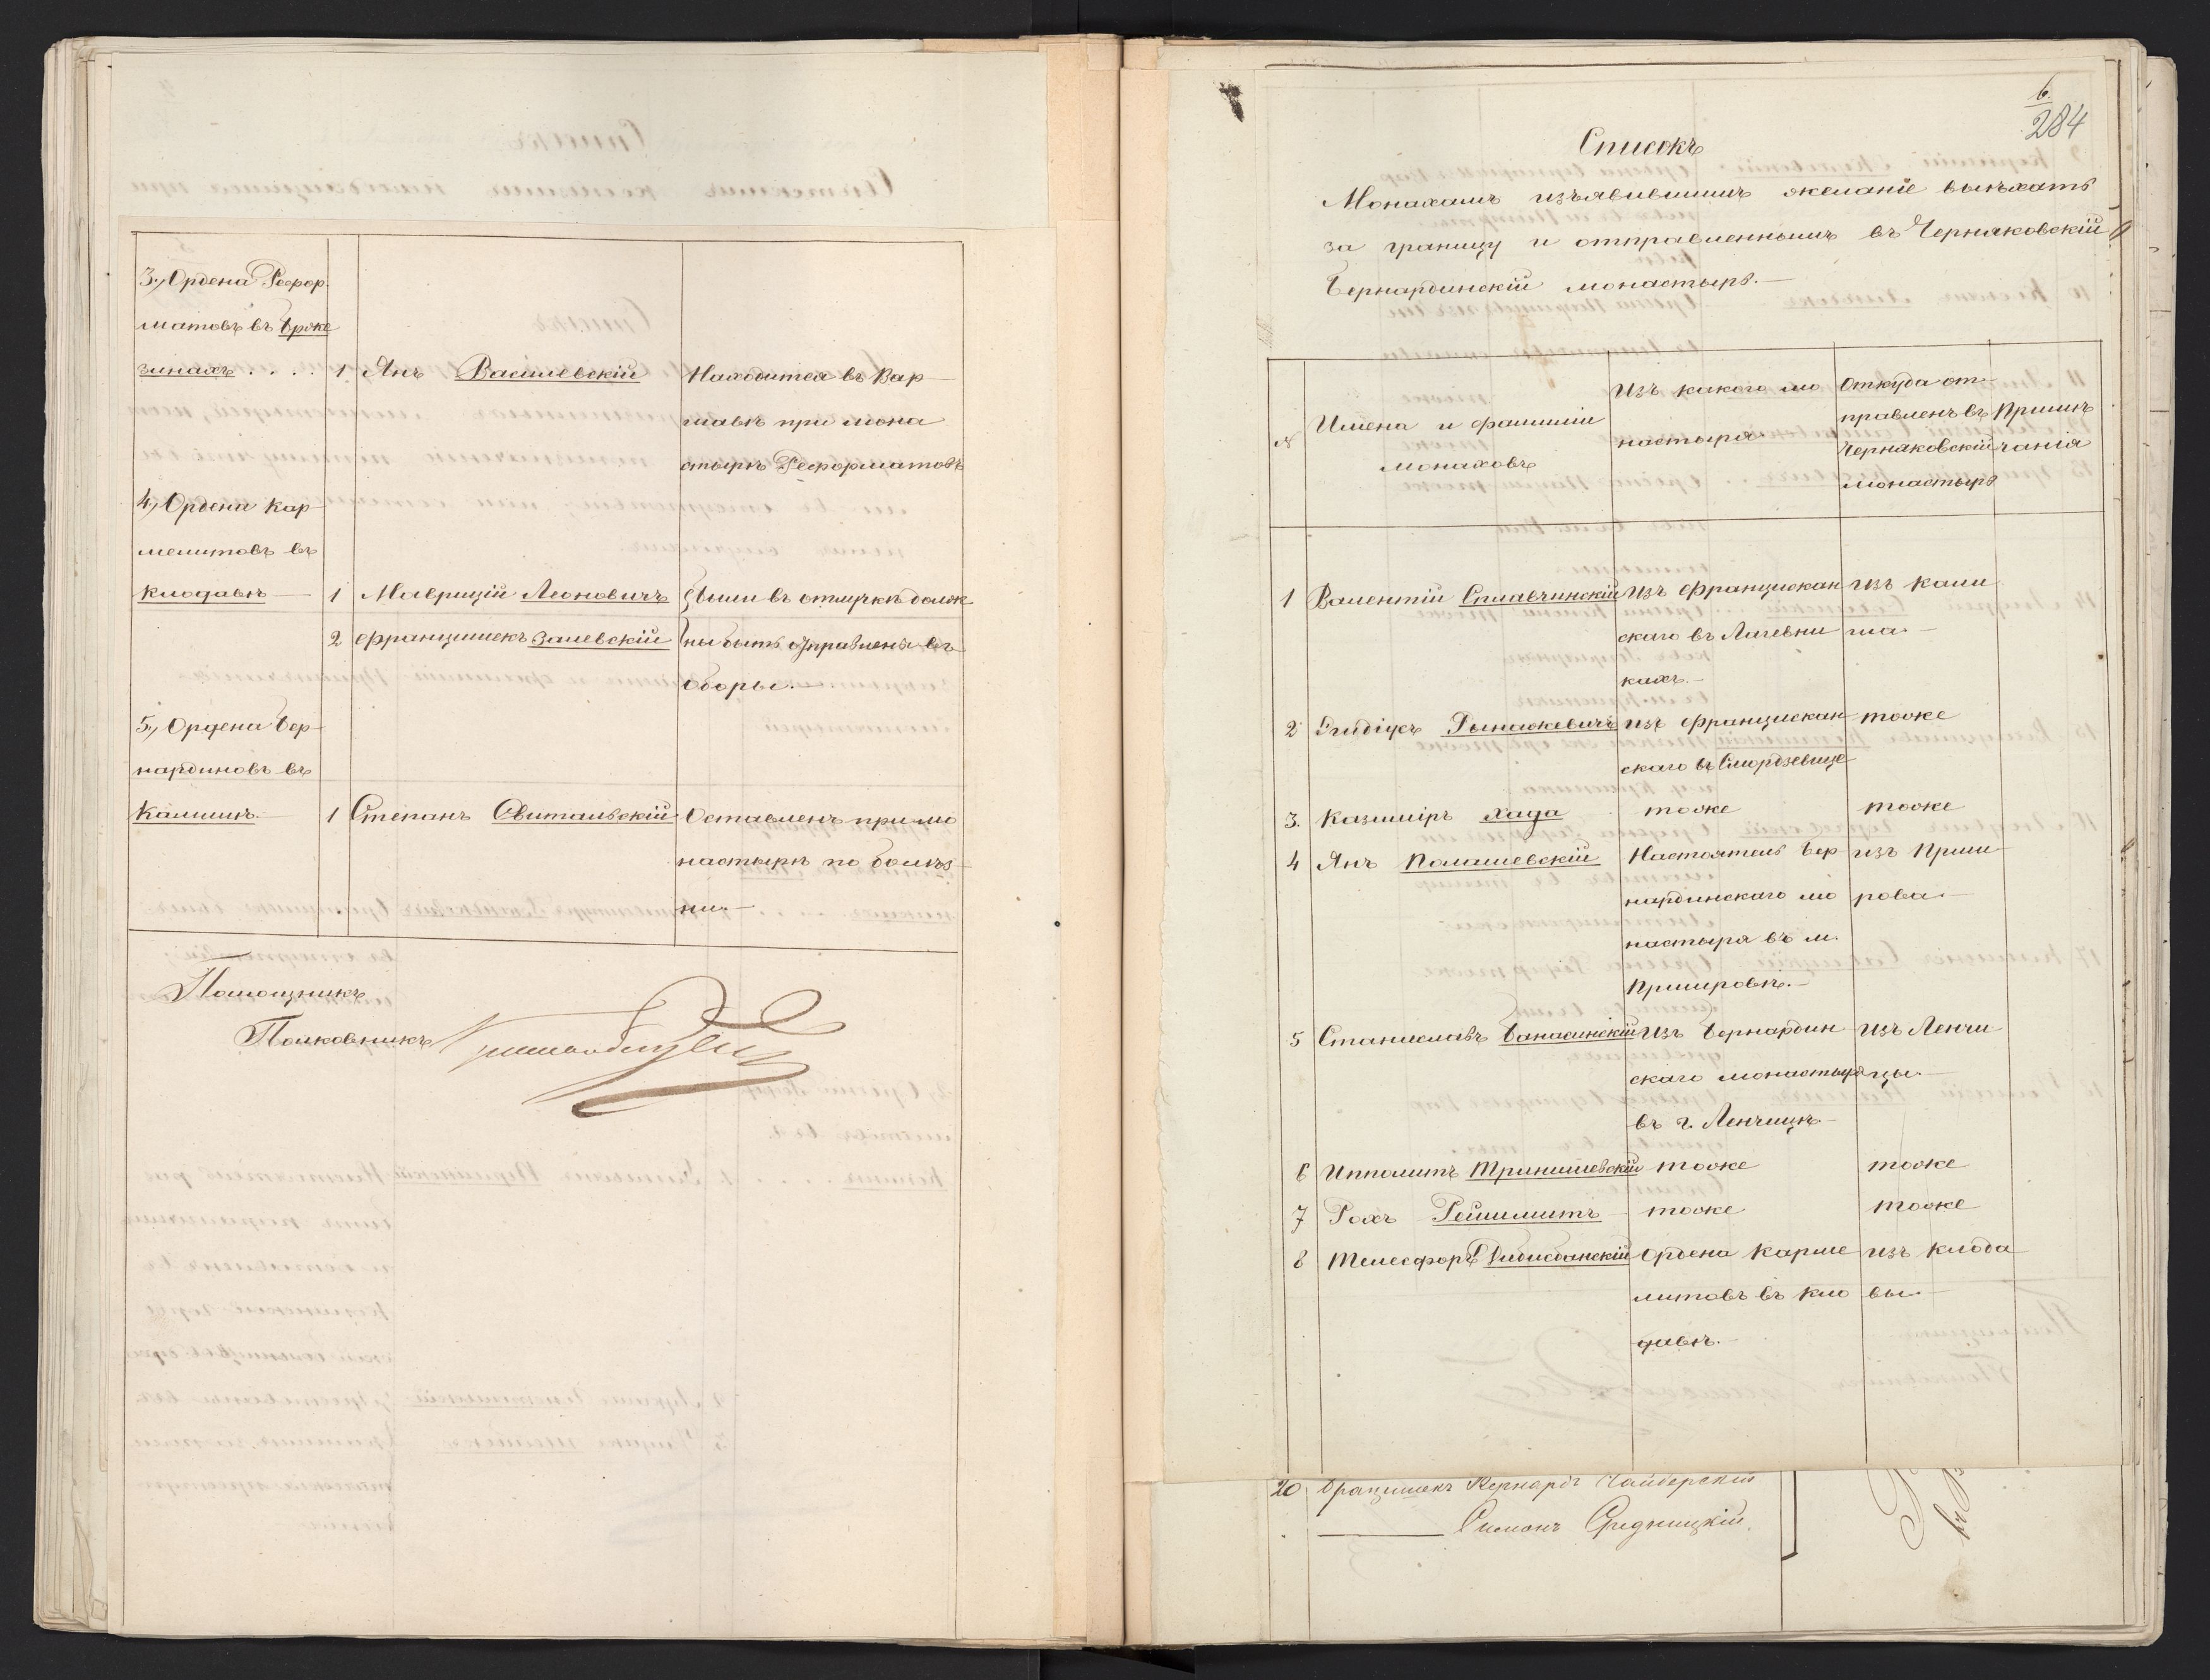 3., Ордена Рефор-
матовъ въ Брже
зинахъ . . . . 1 Янъ Василевскій Находится въ Вар-
шавѣ при мона
стырѣ Реформатовъ
4., Ордена Кар-
мелитовъ въ
Клодавѣ — 1 Маврицій Леоновичъ Были въ отлучкѣ долж-
2 Францишекъ Залевскій ны быть отправлены въ
Оборы. —
5., Ордена Бер-
нардиновъ въ
Калишѣ. — 1 Степанъ Свитальскій Оставленъ при мо
настырѣ по болѣз-
ни. —
Помощникъ
Полковникъ
6.
284
Списокъ
Монахамъ изъявившимъ желаніе выѣхать
за границу и отправленнымъ въ Черняковскій
Бернардинскій монастырь. —
№ Имена и фамиліи монаховъ
Изъ какого мо
настыря
Откуда от-
правленъ въ
Черняковскій
монастырь
Примѣ
чанія
1 Валентій Сплавчинскій Изъ Францискан изъ Кали
скаго въ Лагевни ша. —
кахъ. —
2 Эгидіушъ Рынашкевичъ изъ Францискан тоже
скаго въ Смордзевице
3. Казиміръ Хада тоже тоже
4 Янъ Полашевскій Настоятель Бер изъ Прши-
нардинскаго мо рова. —
настыря въ м.
Пршировѣ. —
5 Станиславъ Банасинскій Изъ Бернардин изъ Ленчи
скаго монастыря цы. —
въ г. Ленчицѣ. —
6 Ипполитъ Тринишевскій тоже тоже
7 Рохъ Рейшмитъ тоже тоже
8 Телесфоръ Ордена Карме изъ Клода
литовъ въ Кло вы. —
давѣ. —
20 Францишекъ Бернардъ Чайверскій
Симонъ Средницкій.